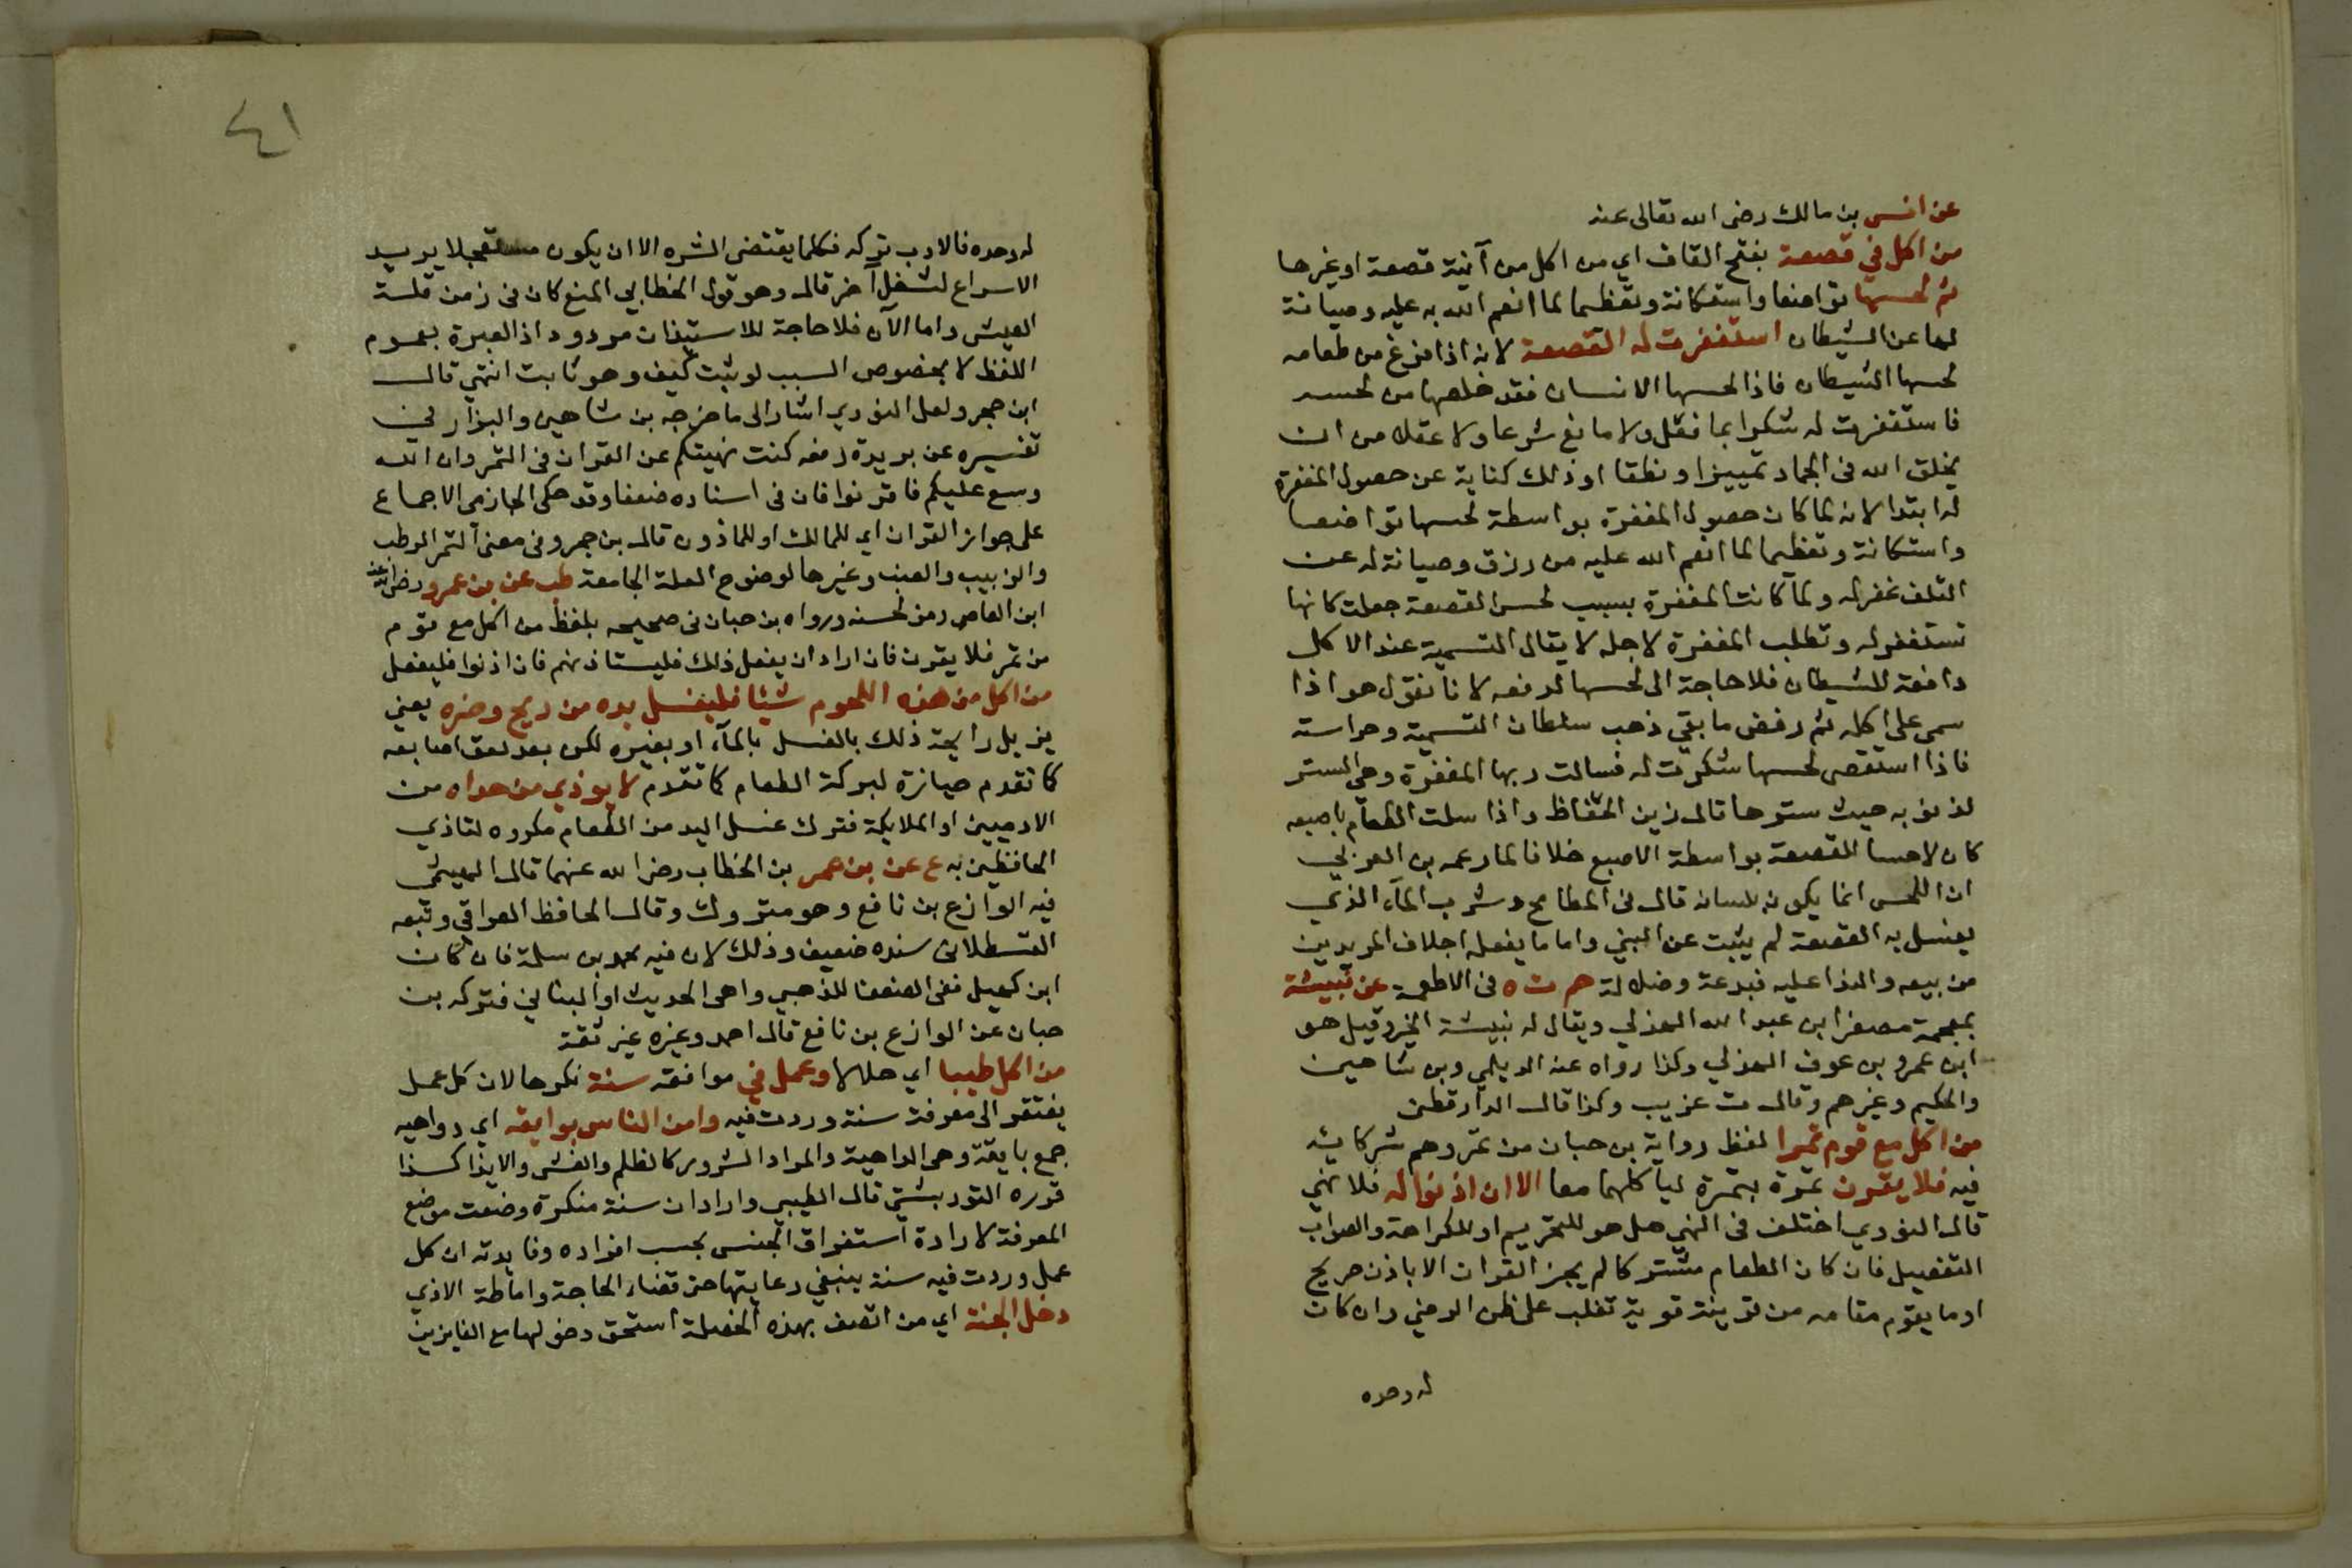 عن انس بن مالك رضى الله تعالى عنه
من اكل في قصعة بفتح القاف اي من اكل من آنية قصعة او غيرها
ثم لحسها تواضعا واستكانة وتعظيما لما انعم الله به عليه وصيانة
لها عن الشيطان استغفرت له القصعة لانه اذا فرغ من طعامه
لحسها الشيطان فاذا لحسها الانسان فقد خلصها من لحسه
فاستغفرت له شكرا بما فعل ولا مانع شرعا ولا عقلا من ان
يخلق الله فى الجماد تمييزا ونطقا او ذلك كناية عن حصول المغفرة
له ابتدا لانه لما كان حصول المغفرة بواسطة لحسها تواضعا
واستكانة وتعظيما لما انعم الله عليه من رزق وصيانة له عن
التلف غفر له ولما كانت المغفرة بسبب لحس القصعة جعلت كانها
تستغفر له وتطلب المغفرة لاجله لا يقال التسمية عند الاكل
دافعة للشيطان فلا حاجة الى لحسها لدفعه لانا نقول هو اذا
سمى على اكله ثم رفض ما بقي ذهب سلطان التسمية وحراسته
فاذا استقصى لحسها شكرت له فسالت ربها المغفرة وهى الستر
لذنوبه حيث سترها قال زين الحفاظ واذا سلت الطعام باصبعه
كان لاحسا للقصعة بواسطة الاصبع خلافا لما زعمه بن العربي
ان اللحس انما يكون بلسانه قال فى المطامح وشرب الماء الذي
يغسل به القصعة لم يثبت عن النبي واما ما يفعله اجلاف المريدين
من بيعه والندا عليه فبدعة وضلالة حم ت ه فى الاطعمة عن نبيشة
بمعجمة مصغرا بن عبد الله الهذلي ويقال له نبيشة الخير وقيل هو
ابن عمرو بن عوف الهذلي وكذا رواه عنه الديلمي وبن شاهين
والحكيم وغيرهم وقال ت غريب وكذا قال الدارقطنى
من اكل مع قوم تمرا لفظ رواية بن حبان من تمر وهم شركائه
فيه فلا يقرن تمرة بتمرة لياكلهما معا الا ان اذنوا له فلا نهي
قال النووي اختلف فى النهي هل هو للتحريم او للكراهة والصواب
التفصيل فان كان الطعام مشتركا لم يجز القران الا باذن صريح
او ما يقوم مقامه من قرينة قوية تغلب على ظن الرضي وان كان
له وحده
٤١
له وحده فالادب تركه فكلما يقتضى الشره الا ان يكون مستعجلا يريد
الاسراع لشغل آخر قال وهو قول الخطابي المنع كان فى زمن قلة
العيش واما الآن فلا حاجة للاستيذان مردود اذ العبرة بعموم
اللفظ لا بخصوص السبب لو ثبت كيف وهو ثابت انتهي قال
ابن حجر ولعل النووي اشار الى ما خرجه بن شاهين والبزار في
تفسيره عن بريدة رفعه كنت نهيتكم عن القران فى التمر وان الله
وسع عليكم فاقرنوا فان فى اسناده ضعفا وقد حكى الحازمى الاجماع
على جواز القران اي للمالك او للماذون قال بن حجر وفى معنى التمر الرطب
والزبيب والعنب وغيرها لوضوح العلة الجامعة طب عن بن عمرو رضى الله عنه
ابن العاص رمز لحسنه ورواه بن حبان فى صحيحه بلفظ من اكل مع قوم
من تمر فلا يقرن فان اراد ان يفعل ذلك فليستاذنهم فان اذنوا فليفعل
من اكل من هذه اللحوم شيئا فليغسل يده من ريح وضره يعني
يزيل رايحة ذلك بالغسل بالماء او بغيره لكن بعد لعق اصابعه
كما تقدم حيازة لبركة الطعام كما تقدم لا يوذي من حداه من
الادميين او الملايكة فترك غسل اليد من الطعام مكروه لتاذي
الحافظين به ع عن بن عمر بن الخطاب رضى الله عنهما قال الهيثمى
فيه الوازع بن نافع وهو متروك وقال الحافظ العراقي وتبعه
القسطلانى سنده ضعيف وذلك لان فيه محمد بن سلمة فان كان
ابن كهيل ففى الضعفا للذهبي واهى الحديث او البناني فتركه بن
حبان عن الوازع بن نافع قال احمد وغيره غير ثقة
من اكل طيبا اي حلالا وعمل في موافقه سنة نكرها لان كل عمل
يفتقر الى معرفة سنة وردت فيه وامن الناس بوايقه اي دواهيه
جمع بايقة وهى الداهية والمراد الشرور كالظلم والغش والايذا كذا
قرره التوربشتي قال الطيبي واراد ان سنة منكرة وضعت موضع
المعرفة لارادة استغراق الجنس بحسب افراده وفايدته ان كل
عمل وردت فيه سنة ينبغي رعايتها حتى قضاء الحاجة واماطة الاذي
دخل الجنة اي من اتصف بهذه الخصلة استحق دخولها مع الفايزين